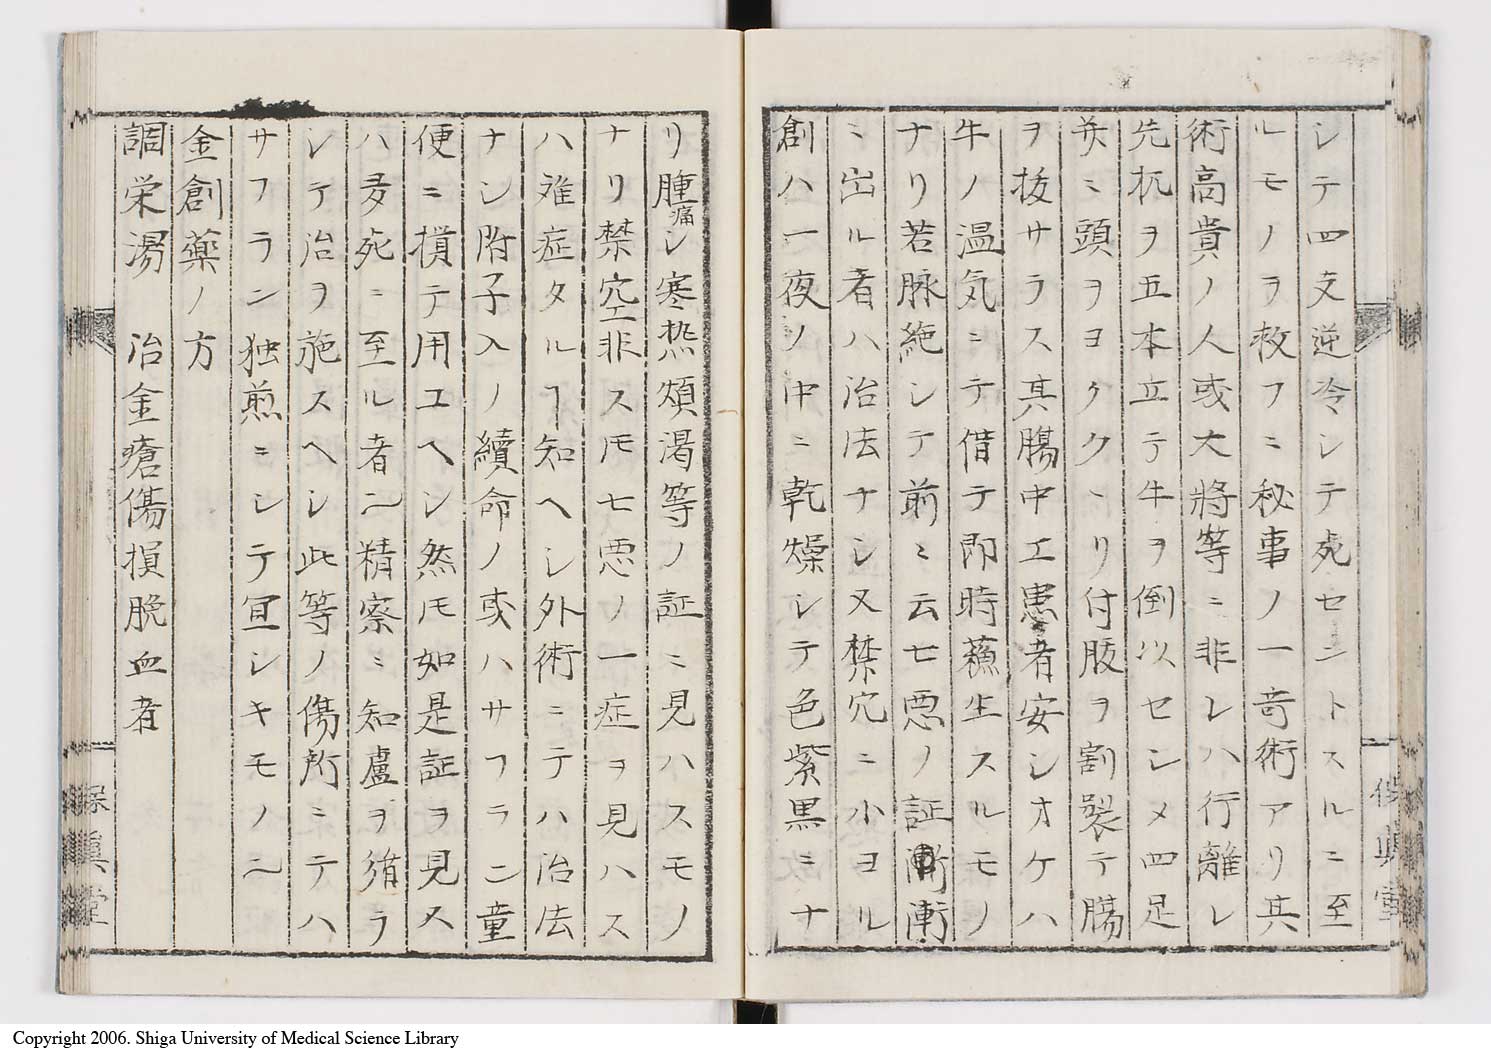 シテ四支逆冷シテ死セントスルニ至
ルモノヲ救フニ秘事ノ一奇術アリ其
術高貴ノ人或大將等ニ非レハ行離レ
先杭ヲ五本立テ牛ヲ倒以セシメ四足
并ニ頭ヲヨクククリ付股ヲ割裂テ膓
ヲ抜サラス其膓中エ患者安シオケハ
牛ノ温気ニテ借テ即時蘓生スルモノ
ナリ若脉絶シテ前ニ云七悪ノ証漸漸
ニ出ル者ハ治法ナシ又禁穴ニ小ヨル
創ハ一夜ノ中ニ乾燥シテ色紫黒ニナ
リ腫痛シ寒热煩渇等ノ証ニ見ハスモノ
ナリ禁空非スモ七悪ノ一症ヲ見ハス
ハ难症タルヿ知ヘシ外術ニテハ治法
ナシ附子入ノ續命ノ或ハサフランニ童
便ニ擯テ用エヘシ然モ如是証ヲ見ス
ハ多死ニ至ル者ニ精察ミ知慮ヲ
シテ治ヲ施スヘシ此等ノ傷所ミテハ
サフラン独煎ニシテ冝シキモノニ
金創藥ノ方
調栄湯　治金瘡傷損脱血者
保真堂
保真堂
Copyright 2006. Shiga University of Medical Science Library